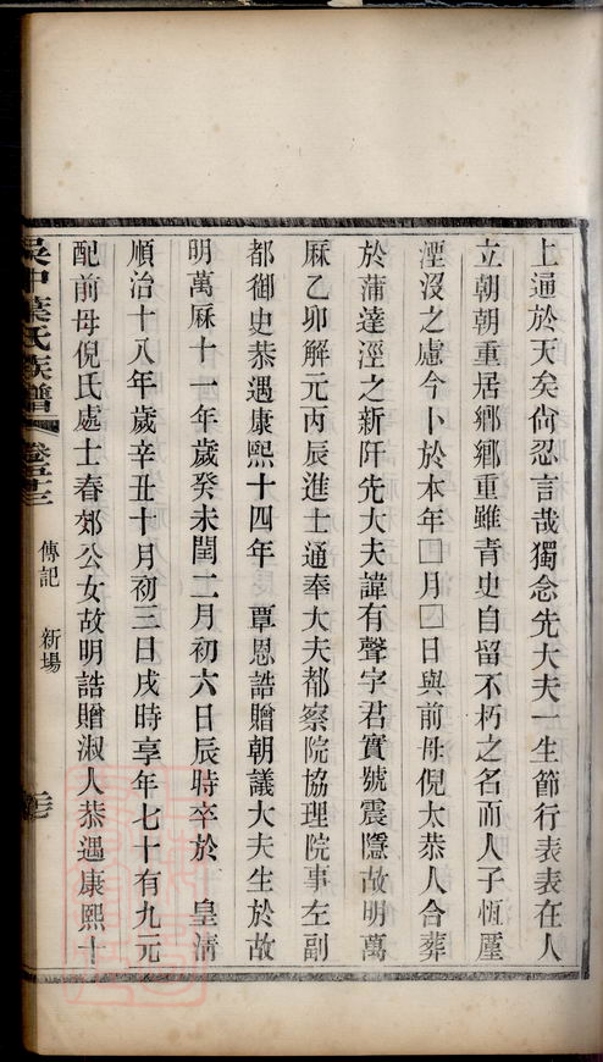 上通於天矣尙忍言哉獨念先大夫一生節行表表在人
立朝朝重居鄕鄕重雖青史自留不朽之名而人子恆廑
湮沒之慮今卜於本年□月□日與前母倪太恭人合葬
於蒲達涇之新阡先大夫諱有聲字君實號震隱故明萬
厤乙卯解元丙辰進士通奉大夫都察院協理院事左副
都御史恭遇康熙十四年　覃恩誥贈朝議大夫生於故
明萬厤十一年歲癸未閏二月初六日辰時卒於　皇淸
順治十八年歲辛丑十月初三日戌時享年七十有九元
配前母倪氏處士春郊公女故明誥贈淑人恭遇康熙十
吳中葉氏族譜　卷五十三　傳記　新場